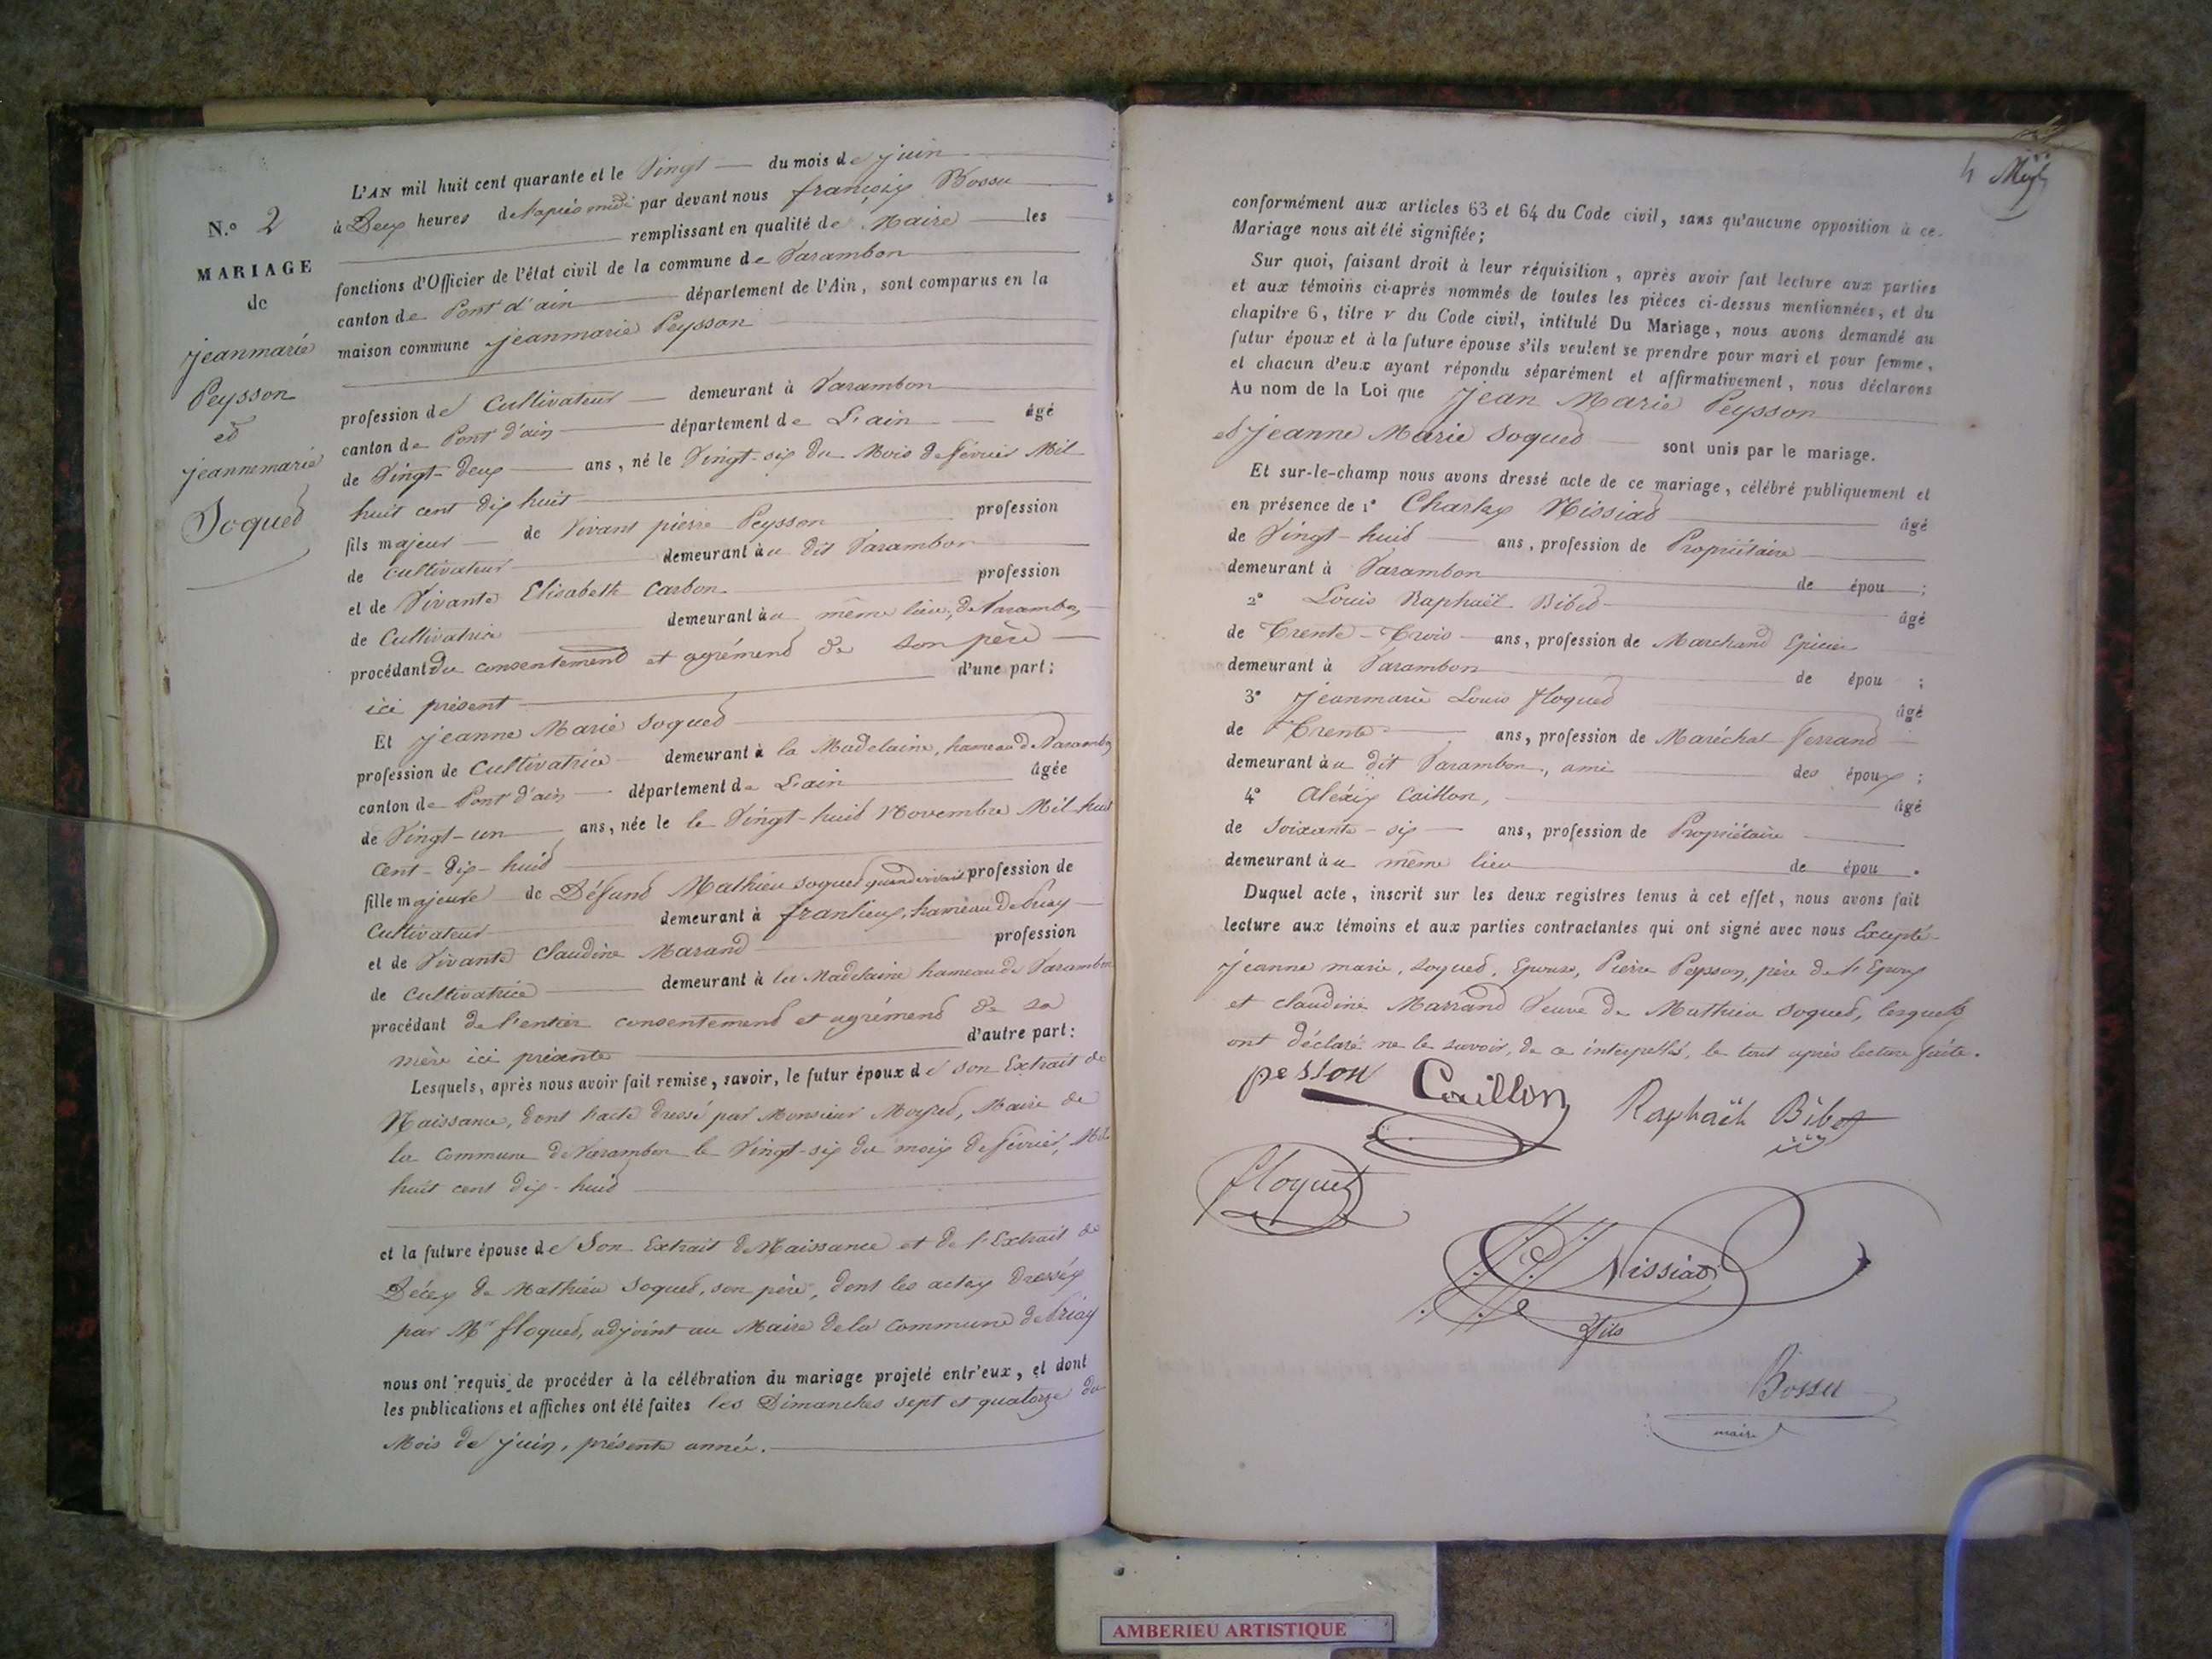 L'AN mil huit cent quarante et le Vingt du mois de juin
à Deux heures de l'après midi par devant nous françois Bossu
remplissant en qualité de Maire les
fonctions d'Officier de l'état civil de la commune de Varambon
canton de Pont d'ain département de l'Ain, sont comparus en la
maison commune jeanmarie Peysson
N.º 2
MARIAGE
de
jeanmarie
Peysson
et
jeannemarie
Soqued
profession de Cultivateur demeurant à Varambon
canton de Pont d'ain département de L'ain âgé
de Vingt-deux ans, né le Vingt-six du Mois de février Mil
huit cent dix huit
fils majeur de Vivant pierre Peysson profession
de cultivateur demeurant au dit Varambon
et de Vivante Elisabeth Carbon profession
de Cultivatrice demeurant au même lieu, de Varambon
procédant du consentement et agrément de son père
d'une part;
ici présent
Et jeanne Marie soqued
profession de Cultivatrice demeurant à la Madelaine, hameau de Varambon
canton de Pont d'ain département de L'ain âgée
de Vingt-un ans, née le le Vingt-huit Novembre Mil huit
cent-dix-huit
fille majeure de Défund Mathieu soqued quand vivait profession de
Cultivateur demeurant à franlieux, hameau de Priay
et de Vivante Claudine Marand profession
de Cultivatrice demeurant à la Madelaine hameau de Varambon
procédant de l'entier consentement et agrément de sa
d'autre part:
mère ici présente
Lesquels, après nous avoir fait remise, savoir, le futur époux de son Extrait de
Naissance, dont l'acte dressé par Monsieur Maire de
la Commune de Varambon le Vingt-six du mois de février, Mil
huit cent dix-huit
et la future épouse de Son Extrait de Naissance et de l'Extrait de
Décès de Mathieu Soqued, son père, dont les actes dressés
par Mr floqued, adjoint au Maire de la Commune de Priay
nous ont requis de procéder à la célébration du mariage projeté entr'eux, et dont
les publications et affiches ont été faites les Dimanches sept et quatorze du
Mois de juin, présente année.
4
conformément aux articles 63 et 64 du Code civil, sans qu'aucune opposition à ce
Mariage nous ait été signifiée;
Sur quoi, faisant droit à leur réquisition, après avoir fait lecture aux parties
et aux témoins ci-après nommés de toutes les pièces ci-dessus mentionnées, et du
chapitre 6, titre v du Code civil, intitulé Du Mariage, nous avons demandé au
futur époux et à la future épouse s'ils veulent se prendre pour mari et pour femme,
et chacun d'eux ayant répondu séparément et affirmativement, nous déclarons
Au nom de la Loi que Jean Marie Peysson
et Jeanne Marie Soqued sont unis par le mariage.
Et sur-le-champ nous avons dressé acte de ce mariage, célébré publiquement et
en présence de 1º Charles Nissiad âgé
de Vingt-huit ans, profession de Propriétaire
demeurant à Varambon de épou ;
2º Louis Raphaël Bibet âgé
de Trente-Trois ans, profession de Marchand Epicier
demeurant à Varambon de épou ;
3º Jeanmarie Louis floqued âgé
de Trente ans, profession de Maréchal ferrand
demeurant au dit Varambon, ami des époux ;
4º Aléxix Caillon, âgé
de Soixante-six ans, profession de Propriétaire
demeurant au même lieu de épou .
Duquel acte, inscrit sur les deux registres tenus à cet effet, nous avons fait
lecture aux témoins et aux parties contractantes qui ont signé avec nous Excepté
jeanne marie, soqued, Epouse, Pierre Peysson, père de l'Epoux
et claudine Marrand Veuve de Mathieu soqued, lesquels
ont déclaré ne le savoir, de ce interpellés, le tout après lecture faite.
pesson Caillon Raphaël Bibet
floquet
Nissiad
fils
Bossu
maire
AMBERIEU ARTISTIQUE